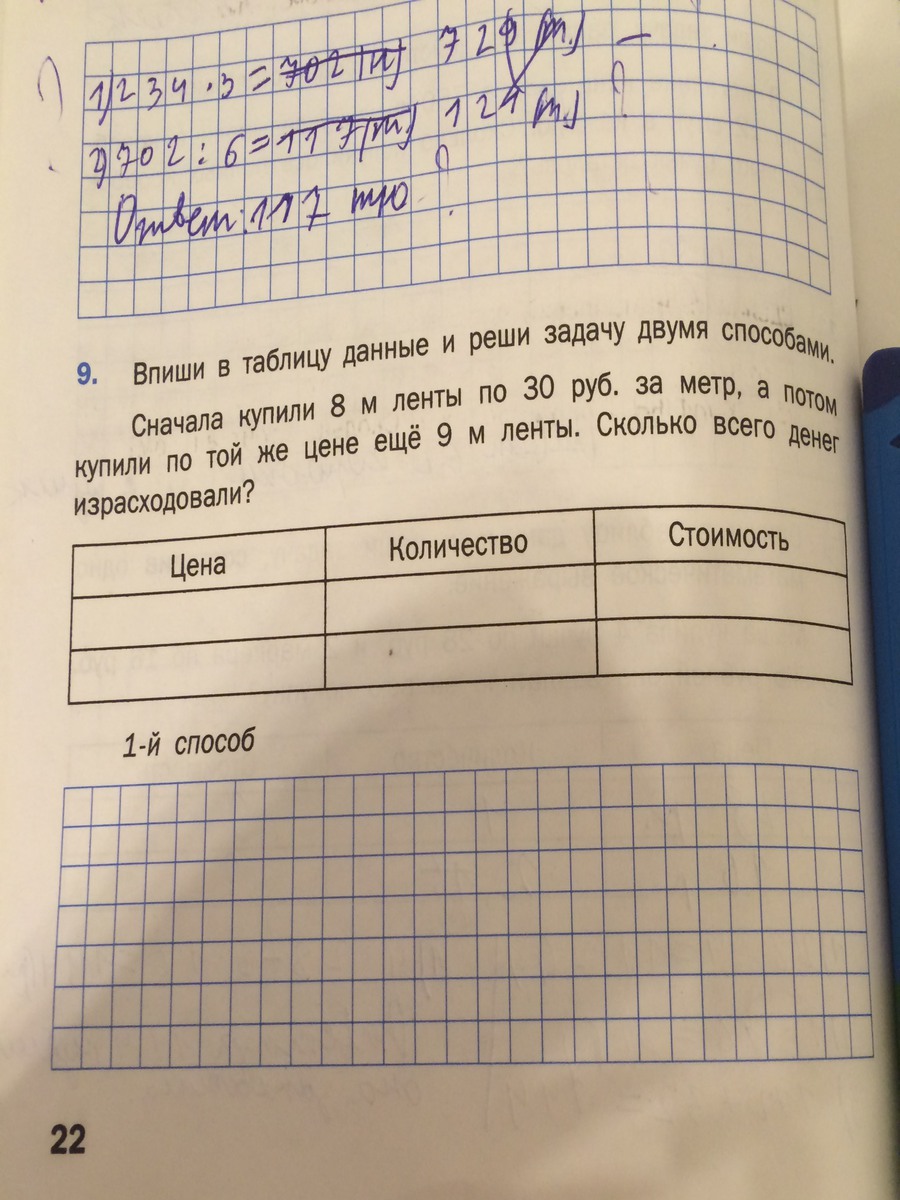 1) 234 · 3 = 702 (п) 729 (т.) –
2) 702 : 6 = 117 (т.) 121 (т.) ?
Ответ: 117 тю
9. Впиши в таблицу данные и реши задачу двумя способами.
Сначала купили 8 м ленты по 30 руб. за метр, а потом
купили по той же цене ещё 9 м ленты. Сколько всего денег
израсходовали?
Цена Количество Стоимость
1-й способ
22